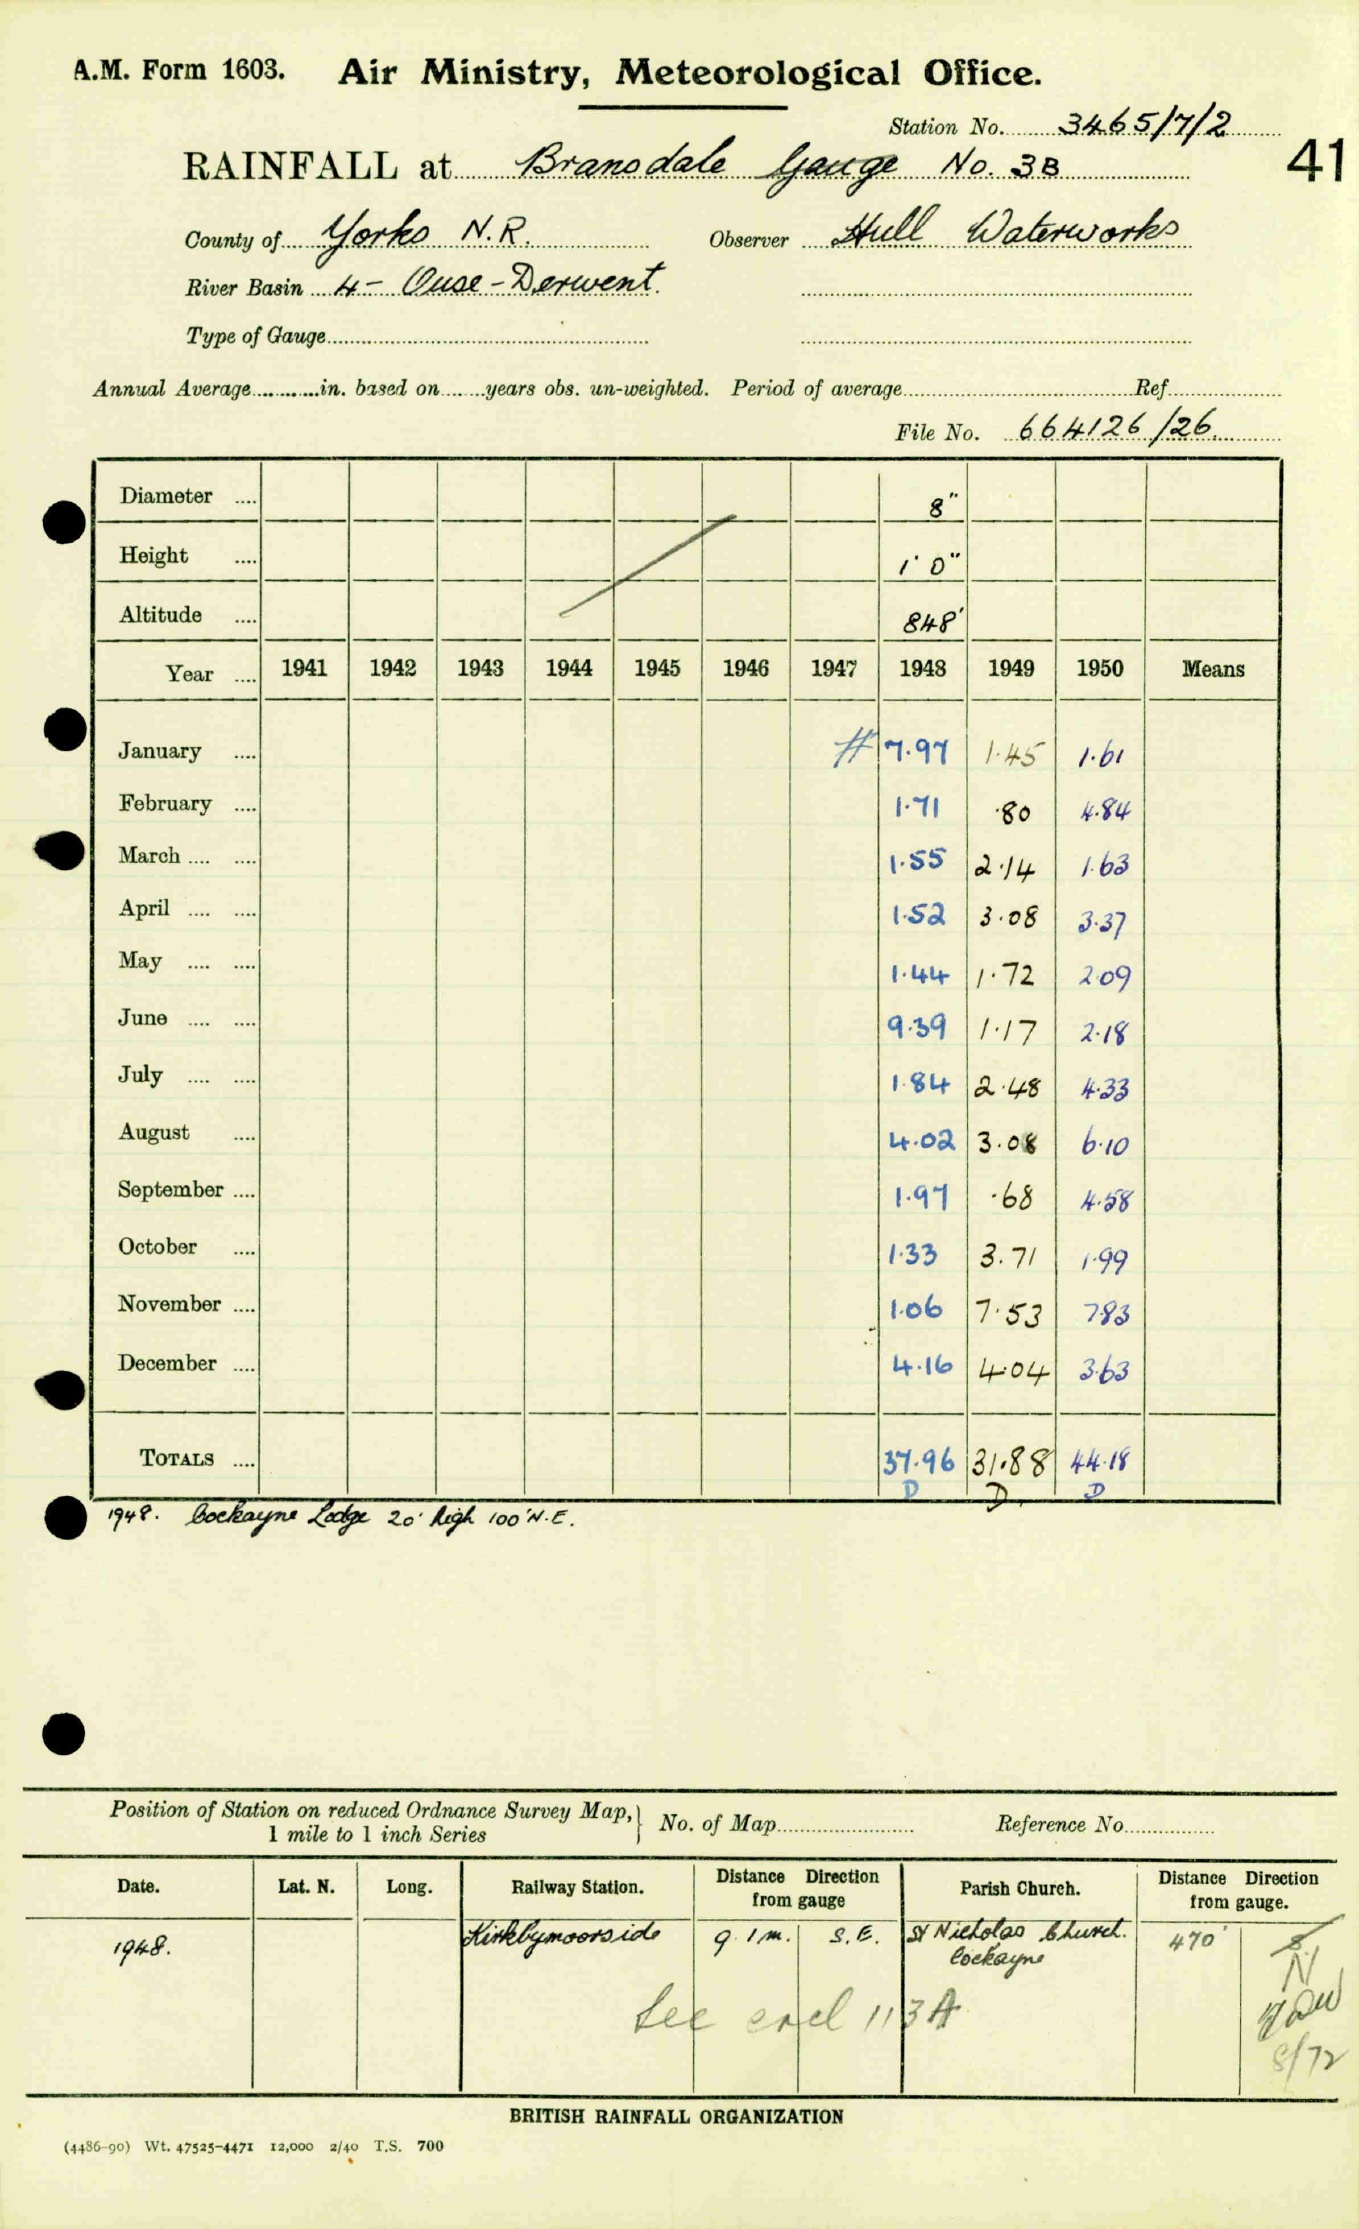 A.M. Form 1603. Air Ministry, Meteorological Office.
Station No. 3465/7/2
41
RAINFALL at Bransdale Gauge No. 3B
County of Yorks N.R. Observer Hull Waterworks
River Basin 4 - Ouse - Derwent.
Type of Gauge
Annual Average in. based on years obs. un-weighted. Period of average Ref
File No. 664126/26
Diameter 8"
Height 1' 0"
Altitude 848'
Year 1941 1942 1943 1944 1945 1946 1947 1948 1949 1950 Means
January # 7.97 1.45 1.61
February 1.71 .80 4.84
March 1.55 2.14 1.63
April 1.52 3.08 3.37
May 1.44 1.72 2.09
June 9.39 1.17 2.18
July 1.84 2.48 4.33
August 4.02 3.08 6.10
September 1.97 .68 4.58
October 1.33 3.71 1.99
November 1.06 7.53 7.83
December 4.16 4.04 3.63
TOTALS 37.96 31.88 44.18
D D D
1948. Cockayne Lodge 20' high 100' N.E.
Position of Station on reduced Ordnance Survey Map, 1 mile to 1 inch Series } No. of Map Reference No.
Date. Lat. N. Long. Railway Station. Distance Direction from gauge Parish Church. Distance Direction from gauge.
1948. Kirkbymoorside 9.1m. S.E. St Nicholas Church. Cockayne 470' S.
N
See encl 113A
8/72
BRITISH RAINFALL ORGANIZATION
(4486-90) Wt. 47525-4471 12,000 2/40 T.S. 700